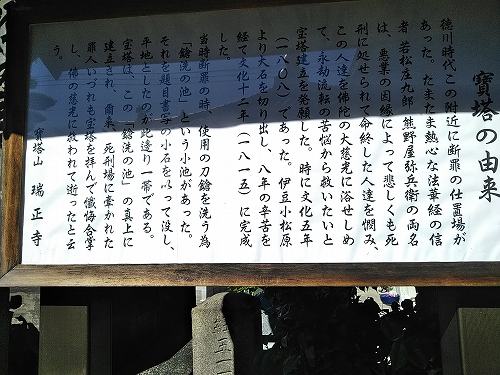 寳塔の由来
徳川時代この附近に断罪の仕置場が
あった。たまたま熱心な法華経の信
者 若松庄九郎 熊野屋弥兵衛の両名
は、悪業の因縁によって悲しくも死
刑に処せられて命終した人達を憫み、
この人達を佛陀の大慈光に浴せしめ
て、永劫流転の苦悩から救いたいと
宝塔建立を発願した。時に文化五年
(一八〇八)であった。伊豆小松原
より大石を切り出し、八年の辛苦を
経て文化十二年(一八一五)に完成
した。
当時断罪の時、使用の刀鎗を洗う為
「鎗洗の池」という小池があった。
それを題目書写の小石を以って没し、
平地としたのが此辺り一帯である。
宝塔は、この「鎗洗の池」の真上に
建立され、爾来、死刑場に牽かれた
罪人いづれも宝塔を拝んで懺悔合掌
し、佛の慈光に救われて逝ったと云
う。
寳塔山 瑞正寺